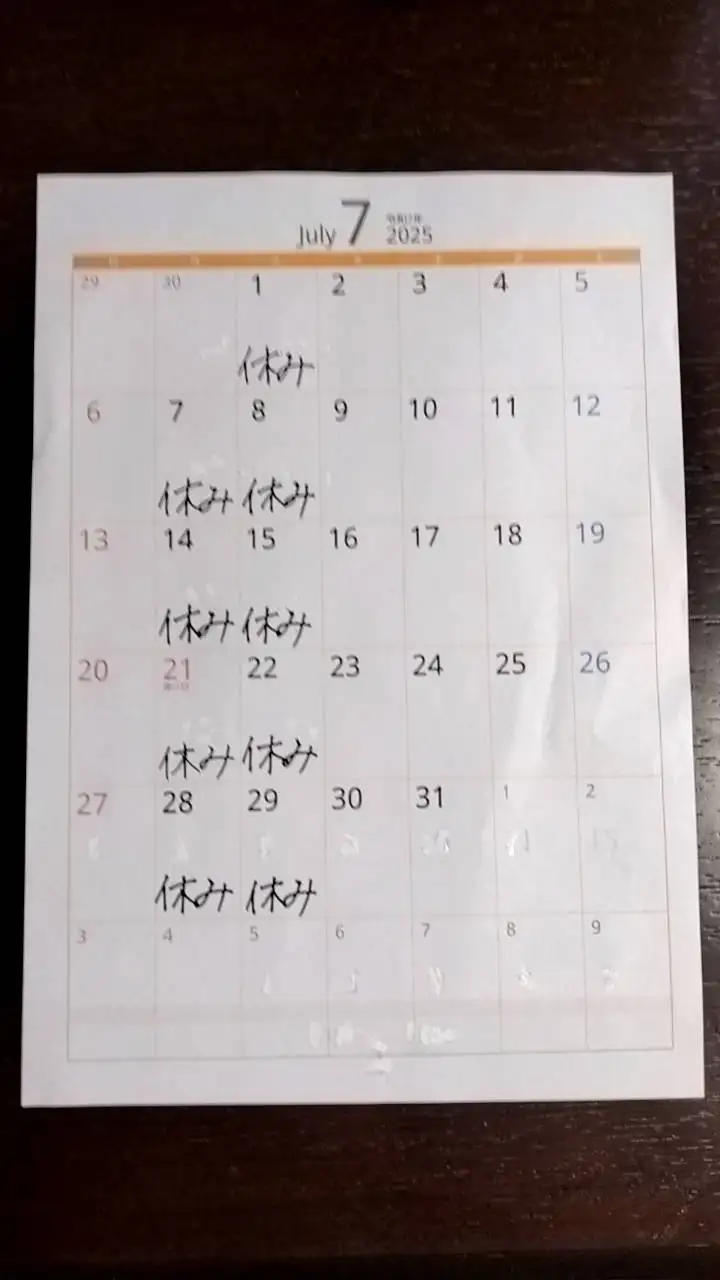 July 7 2025
29 30 1 2 3 4 5
休み
6 7 8 9 10 11 12
休み 休み
13 14 15 16 17 18 19
休み 休み
20 21 22 23 24 25 26
休み 休み
27 28 29 30 31 1 2
休み 休み
3 4 5 6 7 8 9